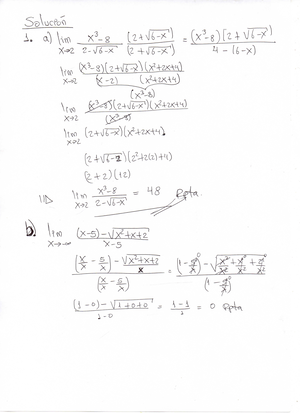 Solución
1. a) lim x→2 x³-8 / 2-√6-x (2+√6-x) / (2+√6-x) = (x³-8)[2+√6-x] / 4-(6-x)
lim x→2 (x³-8)(2+√6-x)(x²+2x+4) / (x-2) (x²+2x+4)
(x³-8)
lim x→2 (x³-8)(2+√6-x)(x²+2x+4) / (x³-8)
lim x→2 (2+√6-x)(x²+2x+4)
(2+√6-2)(2²+2(2)+4)
(2+2)(12)
lim x→2 x³-8 / 2-√6-x = 48 Rpta.
b) lim x→-∞ (x-5)-√x²+x+2 / x-5
(x/x - 5/x) - √x²+x+2 / x / (x/x - 5/x) = (1-5/x)⁰ - √x²/x² + x/x² + 2/x² / (1-5/x)
(1-0)-√1+0+0 / 1-0 = 1-1 / 1 = 0 Rpta